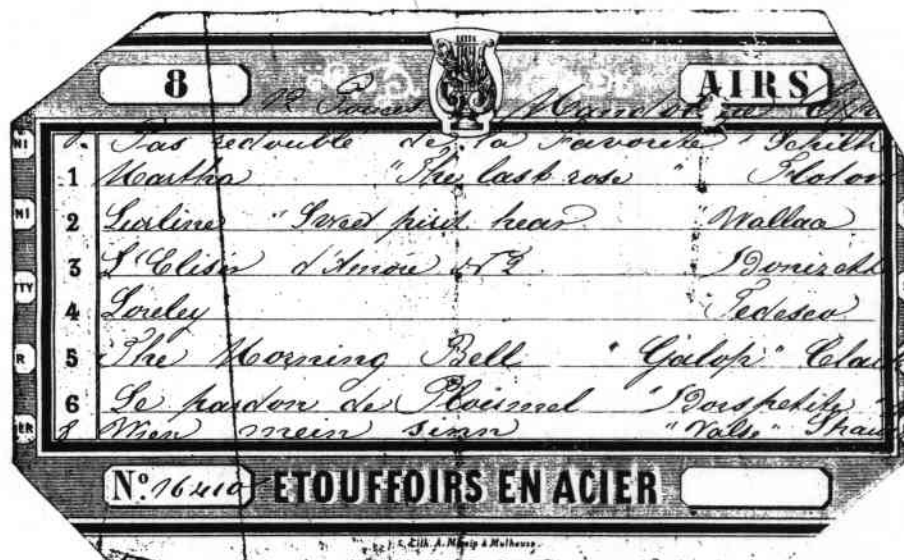 8 AIRS
12 Pouces Mandoline
Pas redouble de la Favorite "Schilt
1 Martha "The last rose" Flotow
2 Lurline "Sweet hear "Wallace
3 L'Elisir d'Amore No 2 Donizetti
4 Loreley Tedesco
5 The Morning Bell "Galop" Clark
6 Le pardon de Ploërmel "Dors petite
8 Wien mein sinn "Valse" Strau
No. 16410 ETOUFFOIRS EN ACIER
Lith. A. à Mulhouse.
NI
NI
TTY
R
ER